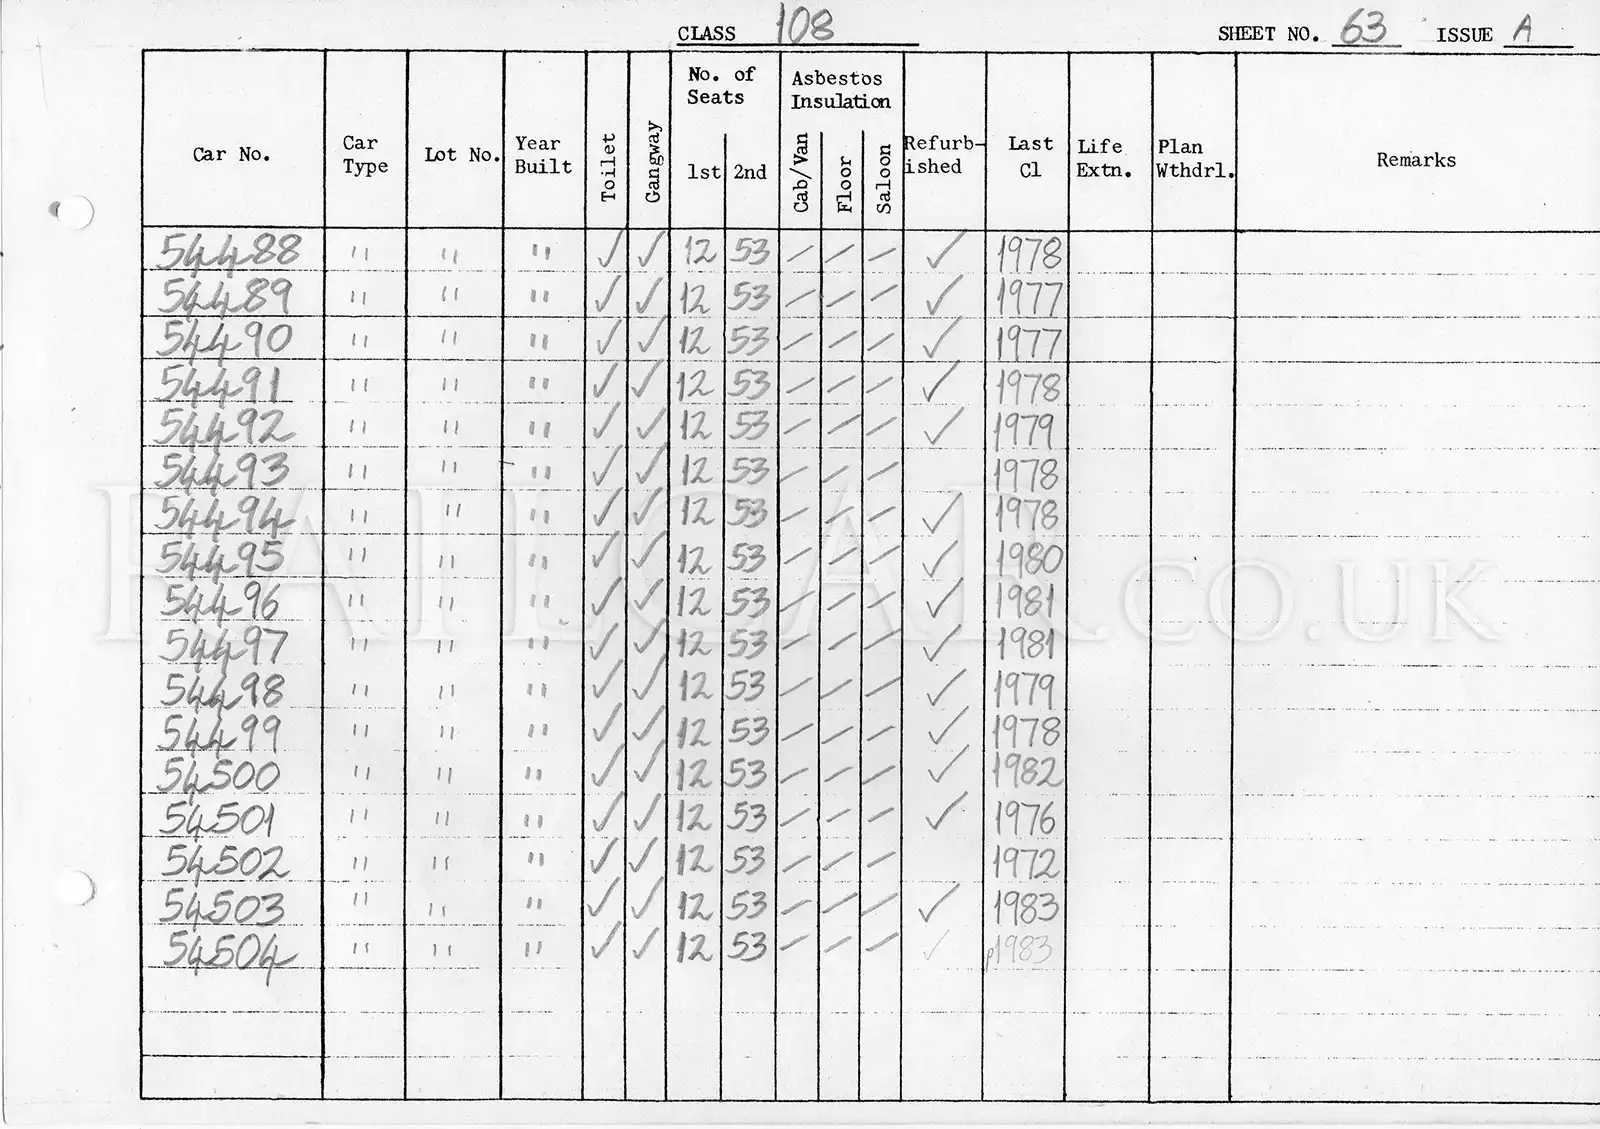 CLASS 108 SHEET NO. 63 ISSUE A
Car No. Car Type Lot No. Year Built Toilet Gangway No. of Seats 1st 2nd Asbestos Insulation Cab/Van Floor Saloon Refurb-ished Last Cl Life Extn. Plan Wthdrl. Remarks
54488 " " " ✓ ✓ 12 53 / / / ✓ 1978
54489 " " " ✓ ✓ 12 53 / / / ✓ 1977
54490 " " " ✓ ✓ 12 53 / / / ✓ 1977
54491 " " " ✓ ✓ 12 53 / / / ✓ 1978
54492 " " " ✓ ✓ 12 53 / / / ✓ 1979
54493 " " " ✓ ✓ 12 53 / / / 1978
54494 " " " ✓ ✓ 12 53 / / / ✓ 1978
54495 " " " ✓ ✓ 12 53 / / / ✓ 1980
54496 " " " ✓ ✓ 12 53 / / / ✓ 1981
54497 " " " ✓ ✓ 12 53 / / / ✓ 1981
54498 " " " ✓ ✓ 12 53 / / / ✓ 1979
54499 " " " ✓ ✓ 12 53 / / / ✓ 1978
54500 " " " ✓ ✓ 12 53 / / / ✓ 1982
54501 " " " ✓ ✓ 12 53 / / / ✓ 1976
54502 " " " ✓ ✓ 12 53 / / / 1972
54503 " " " ✓ ✓ 12 53 / / / ✓ 1983
54504 " " " ✓ ✓ 12 53 / / / ✓ p1983
RAILCAR.CO.UK